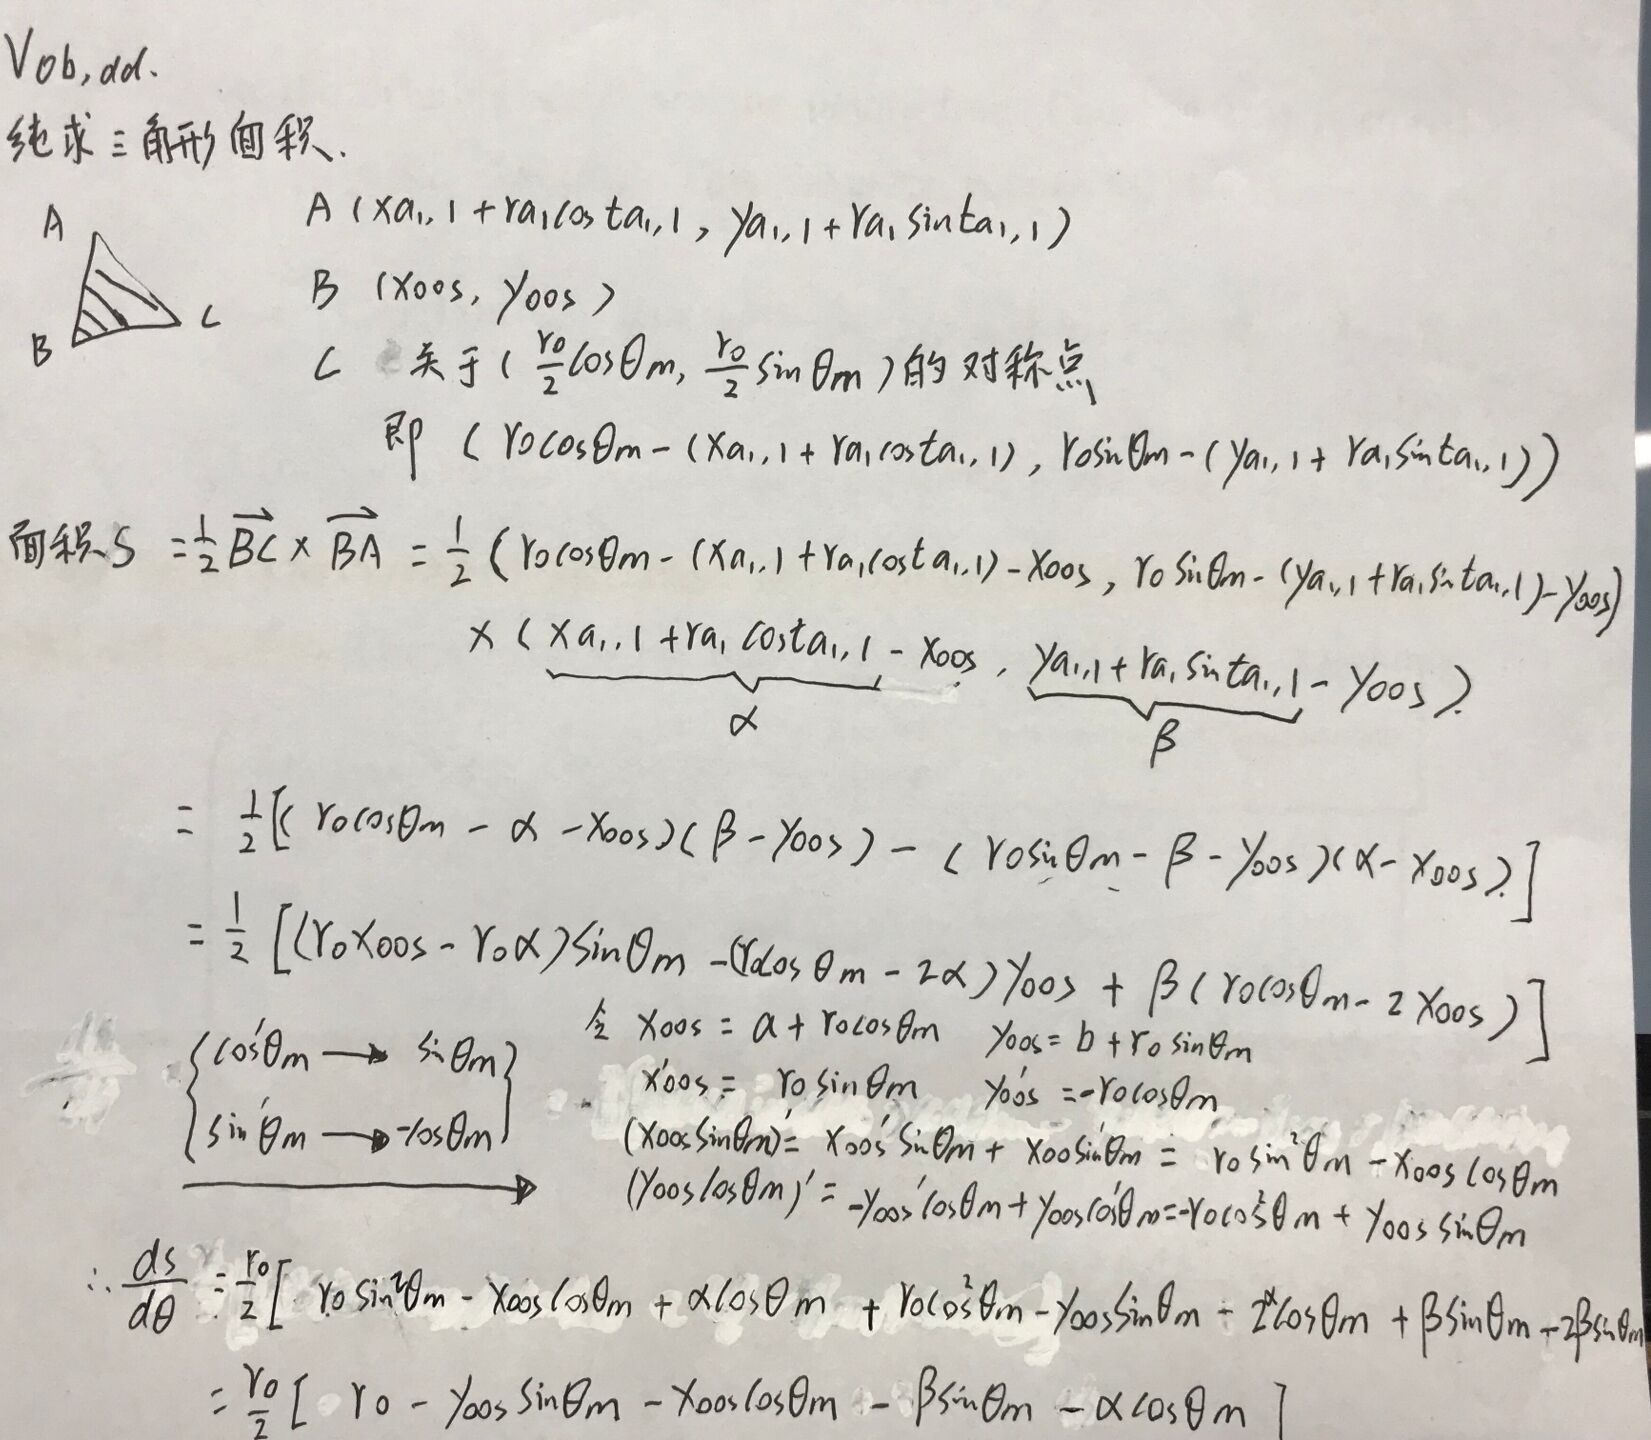 Vob,dd.
纯求三角形面积.
A
B
C
A (xa₁,1+ra₁costa₁,1, ya₁,1+ra₁sinta₁,1)
B (xoos, yoos)
C 关于(r₀/2 cosθm, r₀/2 sinθm)的对称点
即 (r₀cosθm-(xa₁,1+ra₁costa₁,1), r₀sinθm-(ya₁,1+ra₁sinta₁,1))
面积S =½ BC× BA = ½ (r₀cosθm-(xa₁,1+ra₁costa₁,1)-xoos, r₀sinθm-(ya₁,1+ra₁sinta₁,1)-yoos)
×(xa₁,1+ra₁costa₁,1-xoos, ya₁,1+ra₁sinta₁,1-yoos).
α β
= ½[(r₀cosθm-α-xoos)(β-yoos)-(r₀sinθm-β-yoos)(α-xoos)]
= ½[(r₀xoos-r₀α)sinθm-(r₀cosθm-2α)yoos+β(r₀cosθm-2xoos)]
令 xoos=a+r₀cosθm yoos=b+r₀sinθm
{cos'θm → sinθm
sin'θm → -cosθm}
x'oos= r₀sinθm y'oos=-r₀cosθm
(xoossinθm)'= xoos'sinθm+xoosin'θm= r₀sin²θm-xooscosθm
(yooscosθm)'=-yoos'cosθm+yooscos'θm=-r₀cos²θm+yoossinθm
∴ ds/dθ = r₀/2[r₀sin²θm-xooscosθm+αcosθm+r₀cos²θm-yoossinθm-2αcosθm+βsinθm-2βsinθm
= r₀/2[r₀-yoossinθm-xooscosθm-βsinθm-αcosθm]